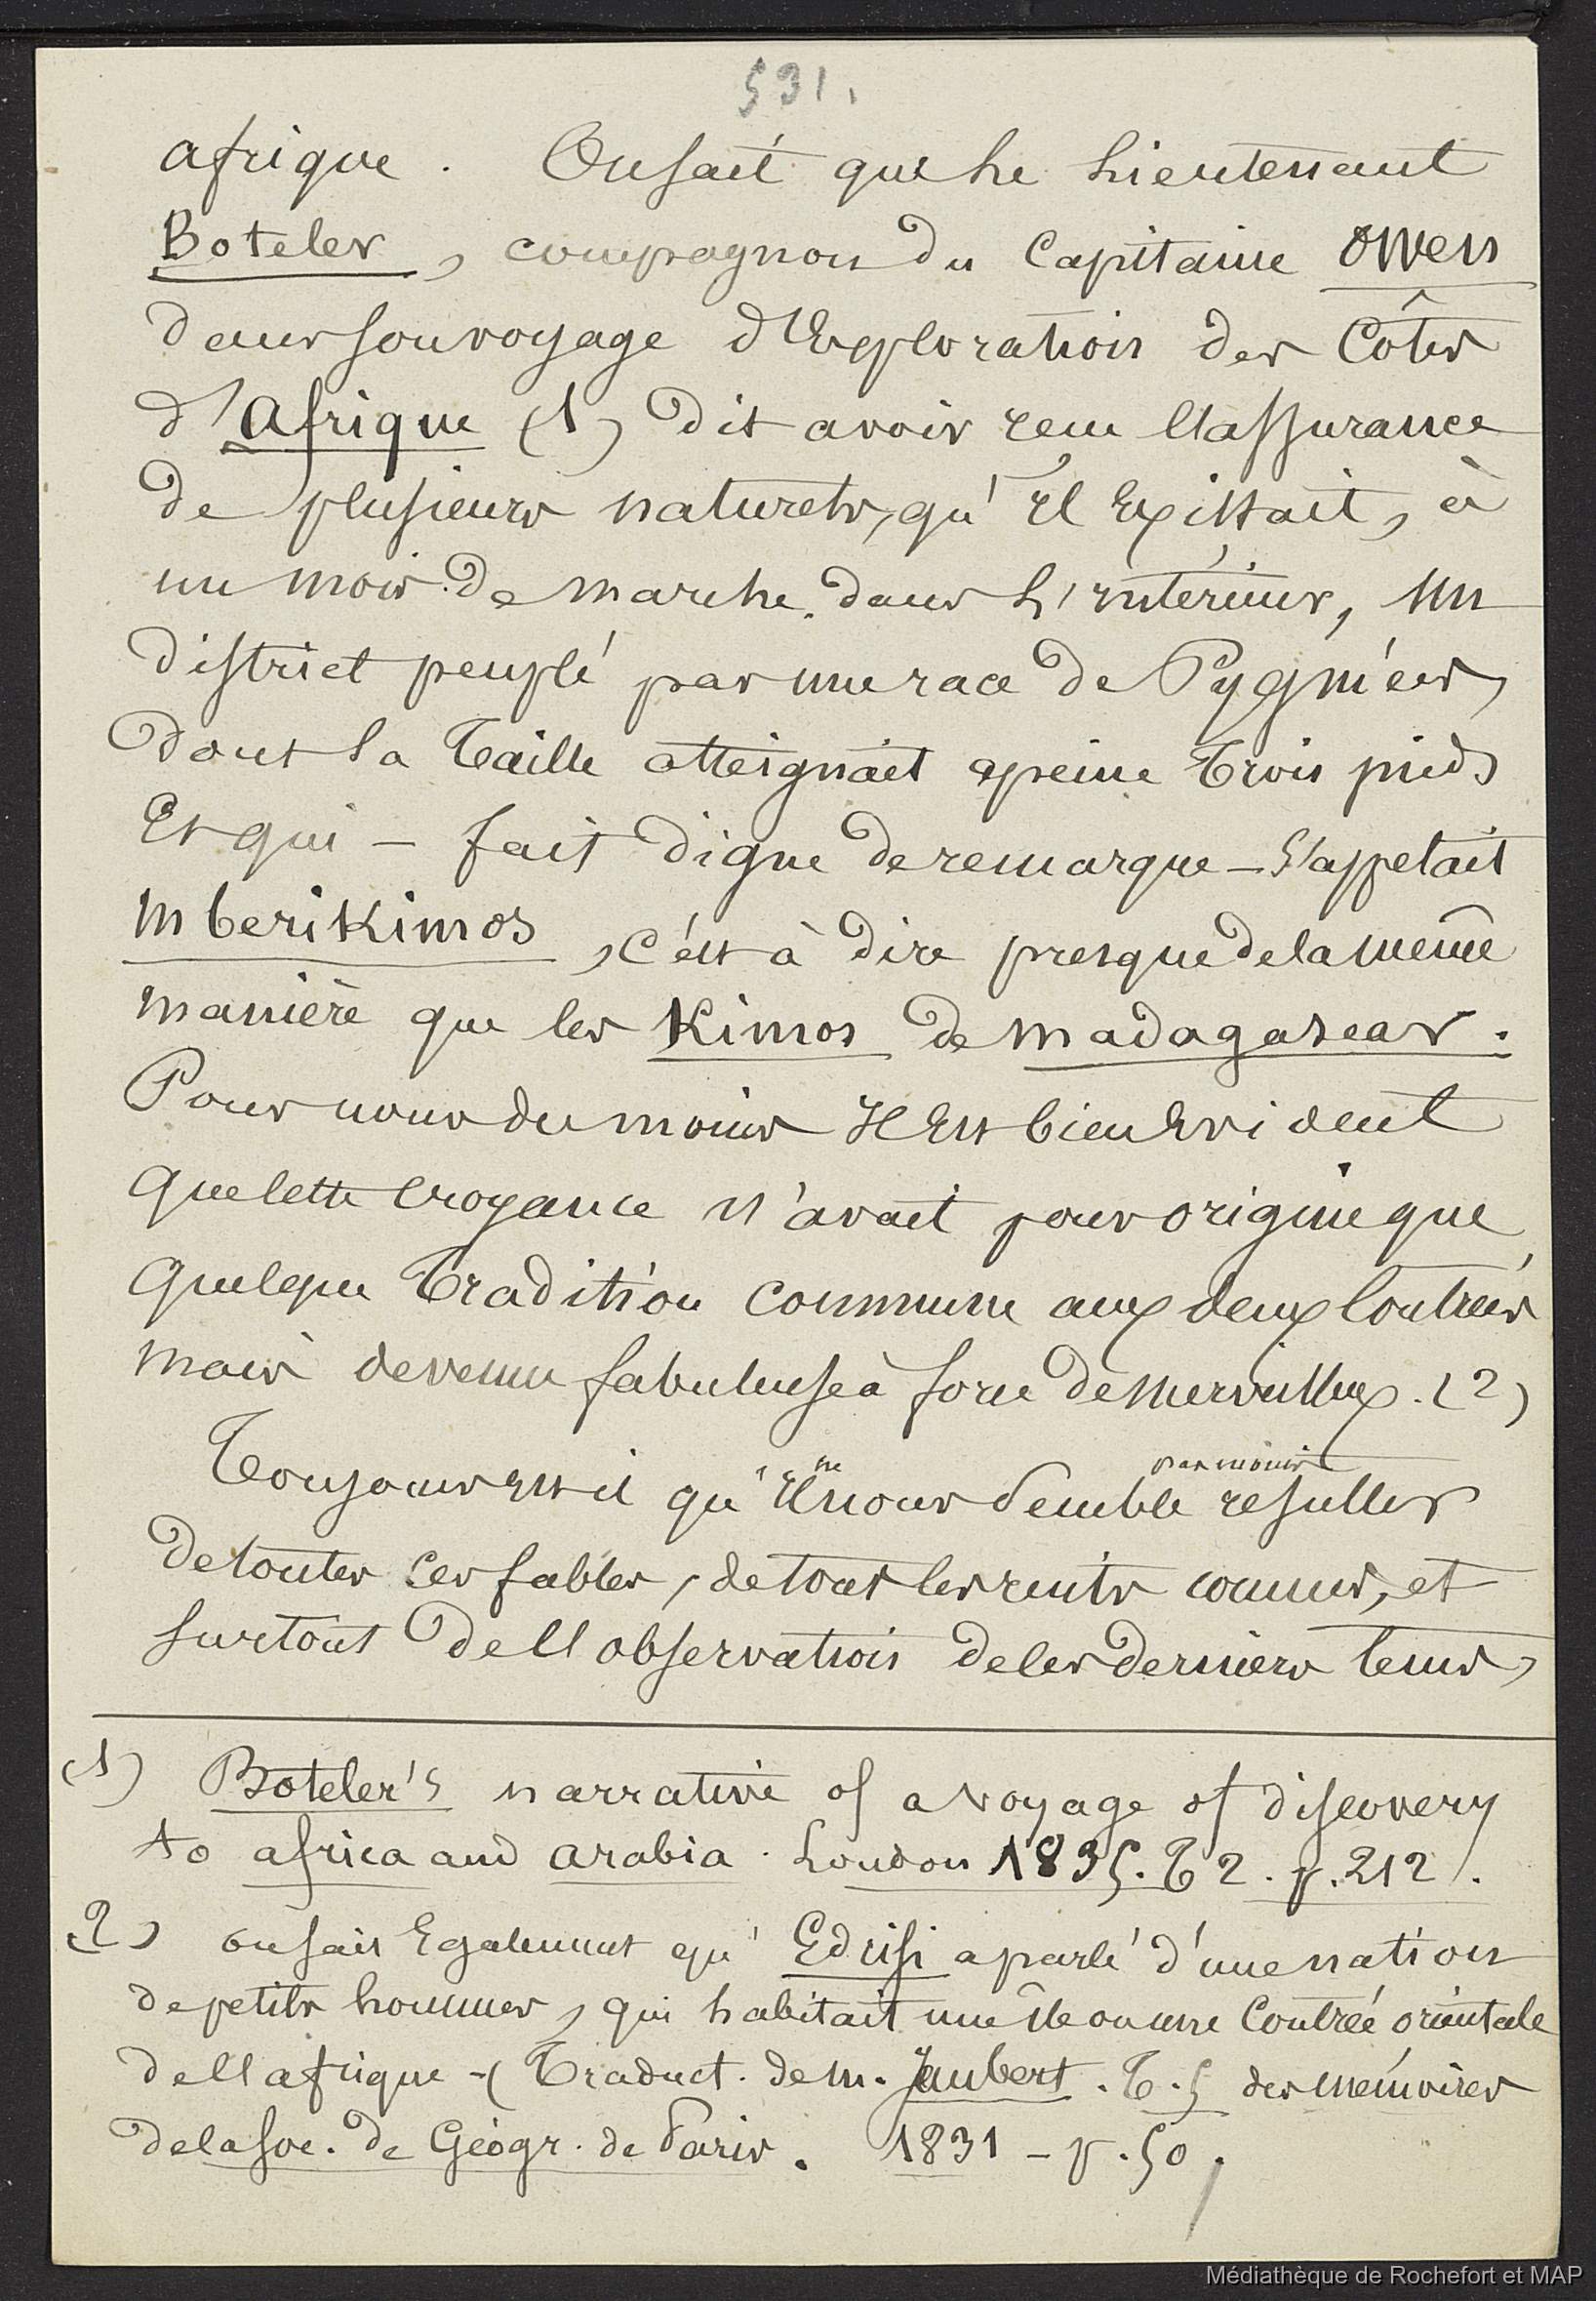 531.
afrique. On sait que le Lieutenant
Boteler, compagnon du Capitaine Owen
dans son voyage d'Exploration des Côtes
d'Afrique (1) dit avoir recu l'assurance
de plusieurs naturels, qu'il Existait, à
un mois de marche dans L'intérieur, un
district peuplé par une race de Pygmées,
dont la Taille atteignait apeine Trois pieds
Et qui — fait digne de remarque — s'appelait
Mberikimos, c'est à dire presque de la même
manière que les Kimos de Madagascar.
Pour nous du moins Il Est bien Evident
que cette croyance n'avait pour origine que
quelque Tradition commune aux deux Contrées
mais devenue fabuleuse à force de merveilleux. (2)
pas moins
Toujours Est il qu'il ne nous semble resulter
de toutes ces fables, de tous les recits connus, et
surtout de l'observation de ces derniers tems,
(1) Boteler's narrative of a voyage of discovery
to africa and arabia. London 1835. T 2. p. 212.
(2) on sait Egalement qu'Edrisi a parlé d'une nation
de petits hommes, qui habitait une île ou une Contrée orientale
de l'afrique - (Traduct. de M. Jaubert. T. 5 des mémoires
de la soc. de Géogr. de Paris. 1831 - p. 50.
Médiathèque de Rochefort et MAP